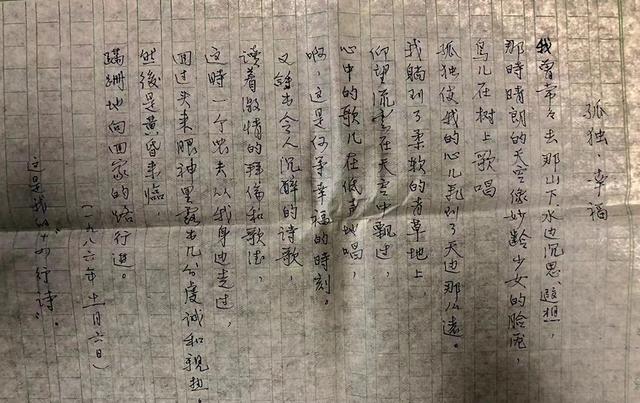 孤独·幸福
我曾常々去那山下、水边沉思、遐想，
那時晴朗的天空像妙龄少女的脸庞，
鸟儿在树上歌唱
孤独使我的心儿飞到了天边那么遠。
我躺到了柔软的青草地上，
仰望流云在天空中飘过，
心中的歌儿在低声地唱，
啊，这是何等幸福的時刻。
又能去令人沉醉的诗歌
读着激情的拜倫和歌德，
这時一个農夫从我身边走过，
回过头来眼神里露出几分虔诚和親热。
然後是黄昏来臨，
蹒跚地向回家的路行進。
(一九八六年十一月六日)
这是我的十四行诗。